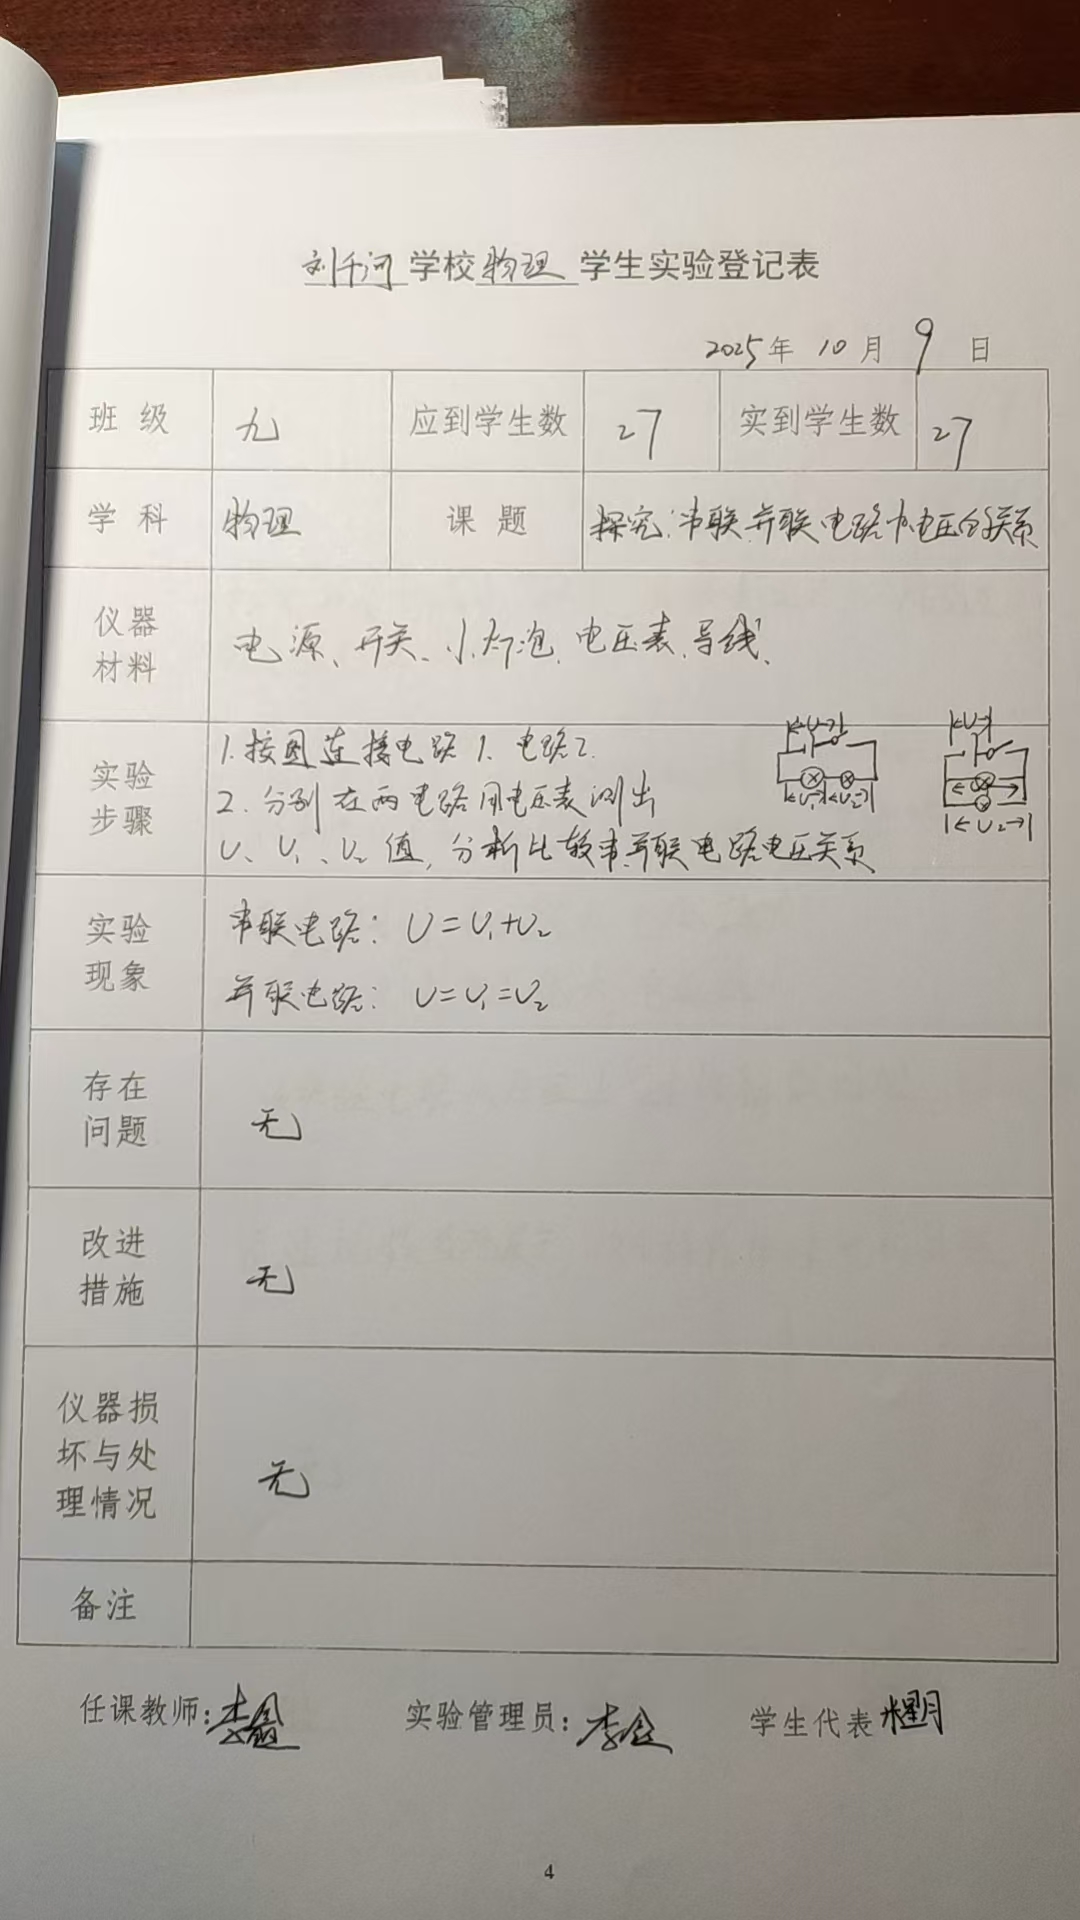 刘千河学校物理学生实验登记表
2025年 10月 9日
班级 九 应到学生数 27 实到学生数 27
学科 物理 课题 探究:串联、并联电路中电压的关系
仪器材料 电源、开关、小灯泡、电压表、导线、
实验步骤
1.按图连接电路1、电路2.
2.分别在两电路用电压表测出
U、U₁、U₂值,分析比较串、并联电路电压关系
|←U→|
|←U₁→|←U₂→|
|←U→|
|←U₂→|
实验现象
串联电路: U=U₁+U₂
并联电路: U=U₁=U₂
存在问题 无
改进措施 无
仪器损坏与处理情况 无
备注
任课教师:李 实验管理员:李 学生代表
4